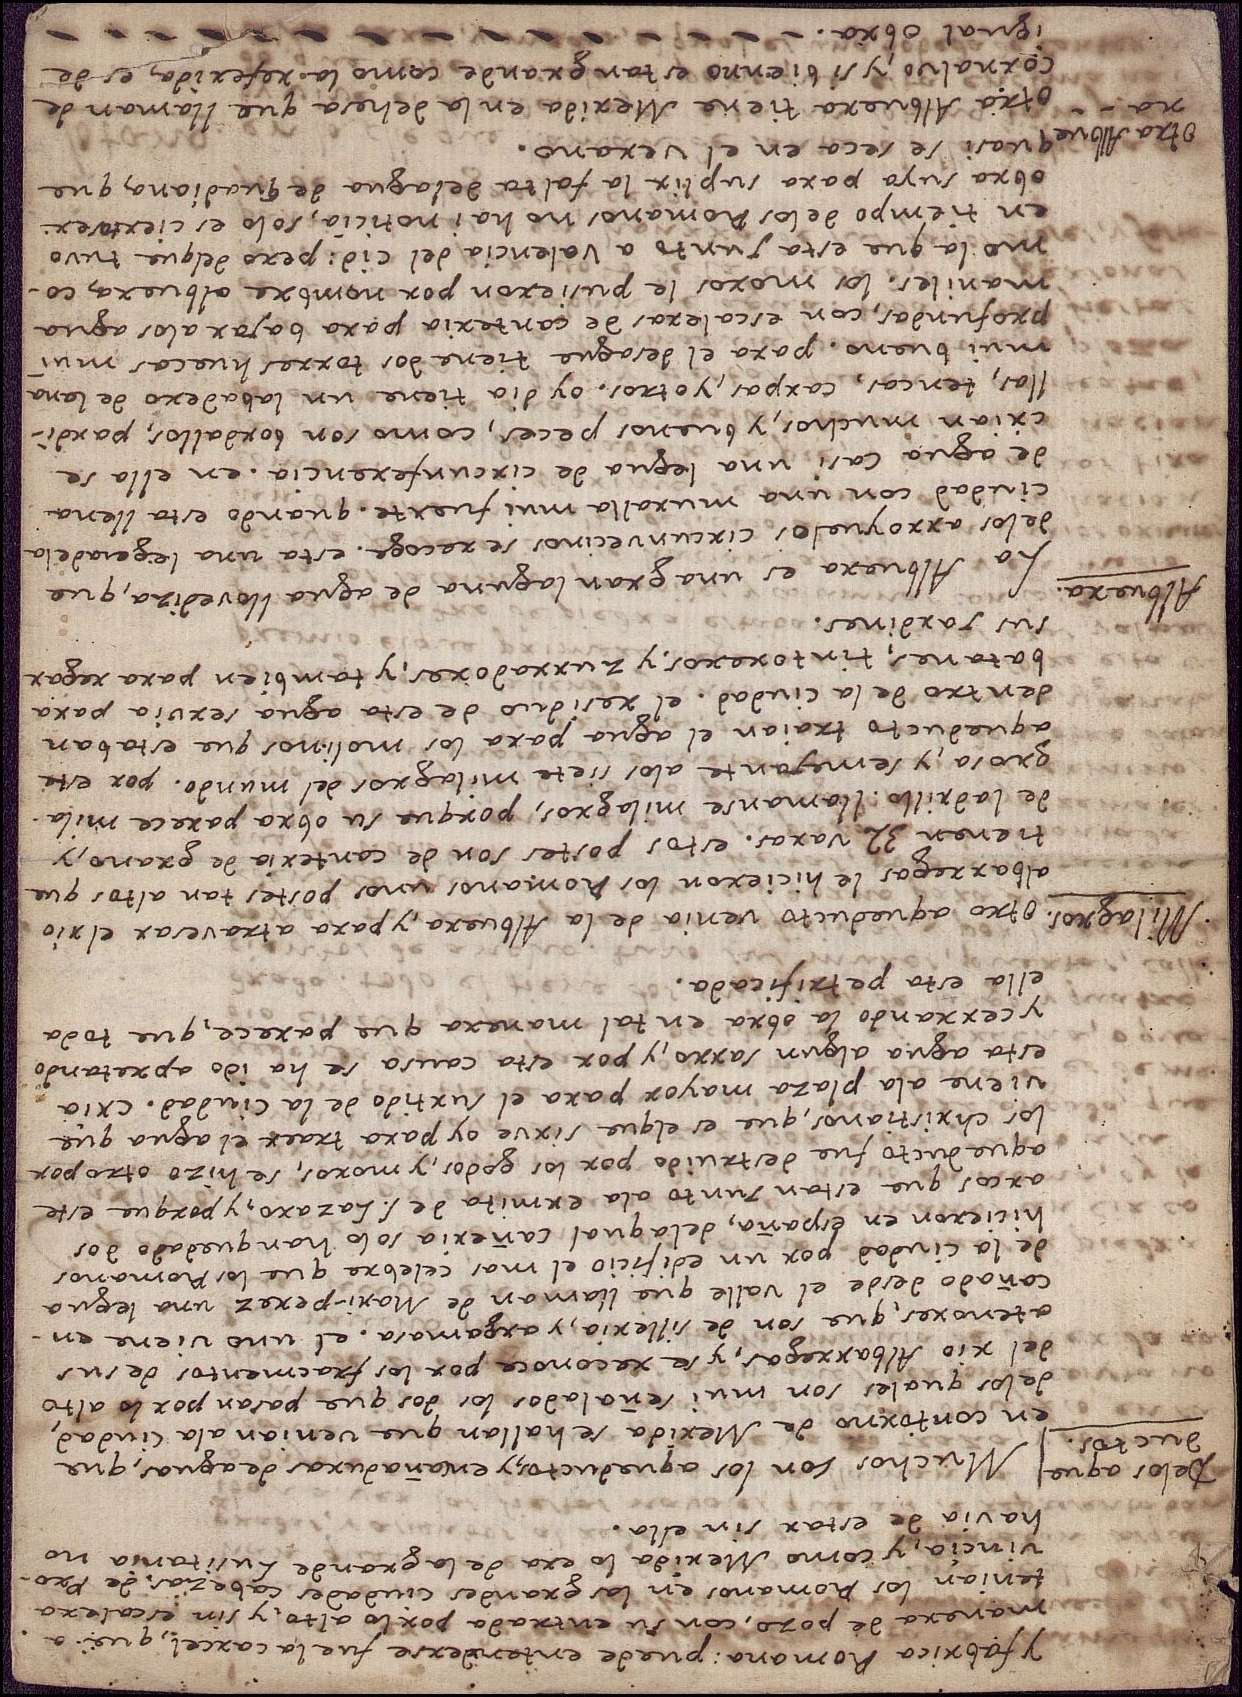 y fabrica Romana: puede entenderse fue la carcel, que a
manera de pozo, con su entrada por lo alto, y sin escalera
tenian los Romanos en las grandes ciudades cabezas de Pro-
vincia, y como Merida lo era de la grande Lusitania no
havia de estar sin ella.
De los aque
ductos.
Muchos son los aqueductos, y encañaduras de aguas, que
en contorno de Merida se hallan que venian a la Ciudad,
de los quales son mui señalados los dos que pasan por lo alto
del rio Albarregas, y se reconoce por los fracmentos de sus
atenores, que son de silleria, y argamasa. el uno viene en-
cañado desde el valle que llaman de Mari-perez una legua
de la ciudad por un edificio el mas celebre que los Romanos
hicieron en España, de la qual cañeria solo han quedado dos
arcos que estan junto a la ermita de S. Lazaro, y porque este
aqueducto fue destruido por los godos, y moros, se hizo otro por
los christianos, que es el que sirve oy para traer el agua que
viene a la plaza mayor para el surtido de la Ciudad. cria
esta agua algun sarro, y por esta causa se ha ido apretando
y cerrando la obra en tal manera que parece, que toda
ella esta petrificada.
Milagros.
Otro aqueducto venia de la Albuera, y para atravesar el rio
albarregas le hicieron los Romanos unos postes tan altos que
tienen 32 varas. estos postes son de canteria de grano, y
de ladrillo. llamanse milagros, porque su obra parece mila-
grosa, y semejante a los siete milagros del mundo. por este
aqueducto traian el agua para los molinos que estaban
dentro de la ciudad. el residuo de esta agua servia para
batanes, tintoreros, y zurradores, y tambien para regar
sus jardines.
Albuera.
La Albuera es una gran laguna de agua llovediza, que
de los arroyuelos circunvecinos se recoge. esta una legua de la
ciudad con una muralla mui fuerte. quando esta llena
de agua casi una legua de circunferencia. en ella se
crian muchos, y buenos peces, como son bordallos, pardi-
llas, tencas, carpas, y otros. oy dia tiene un labadero de lana
mui bueno. para el desague tiene dos torres huecas mui
profundas, con escaleras de canteria para bajar a los agua
maniles. los moros le pusieron por nombre albuera, co-
mo la que esta junto a Valencia del cid: pero del que tuvo
en tiempo de los Romanos no hai noticia, solo es cierto ser
obra suya para suplir la falta del agua de Guadiana, que
quasi se seca en el verano.
Otra Albue
ra -
Otra Albuera tiene Merida en la dehesa que llaman de
cornalvo, y si bien no es tan grande como la referida, es de
igual obra.